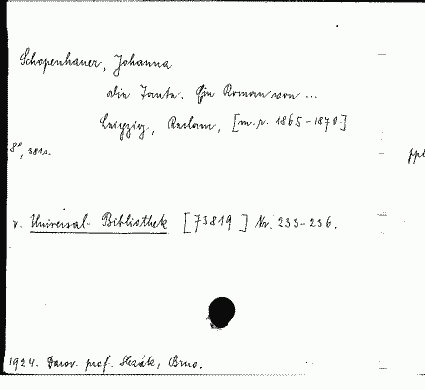 Schopenhauer, Johanna
Die Tante. Ein Roman von ...
Leipzig, Reclam, [m. r. 1865-1870.]
8°, 381s. ppl
v. Universal-Bibliothek [73819] Nr. 233-236.
1924. Darov. prof. Slezák, Brno.